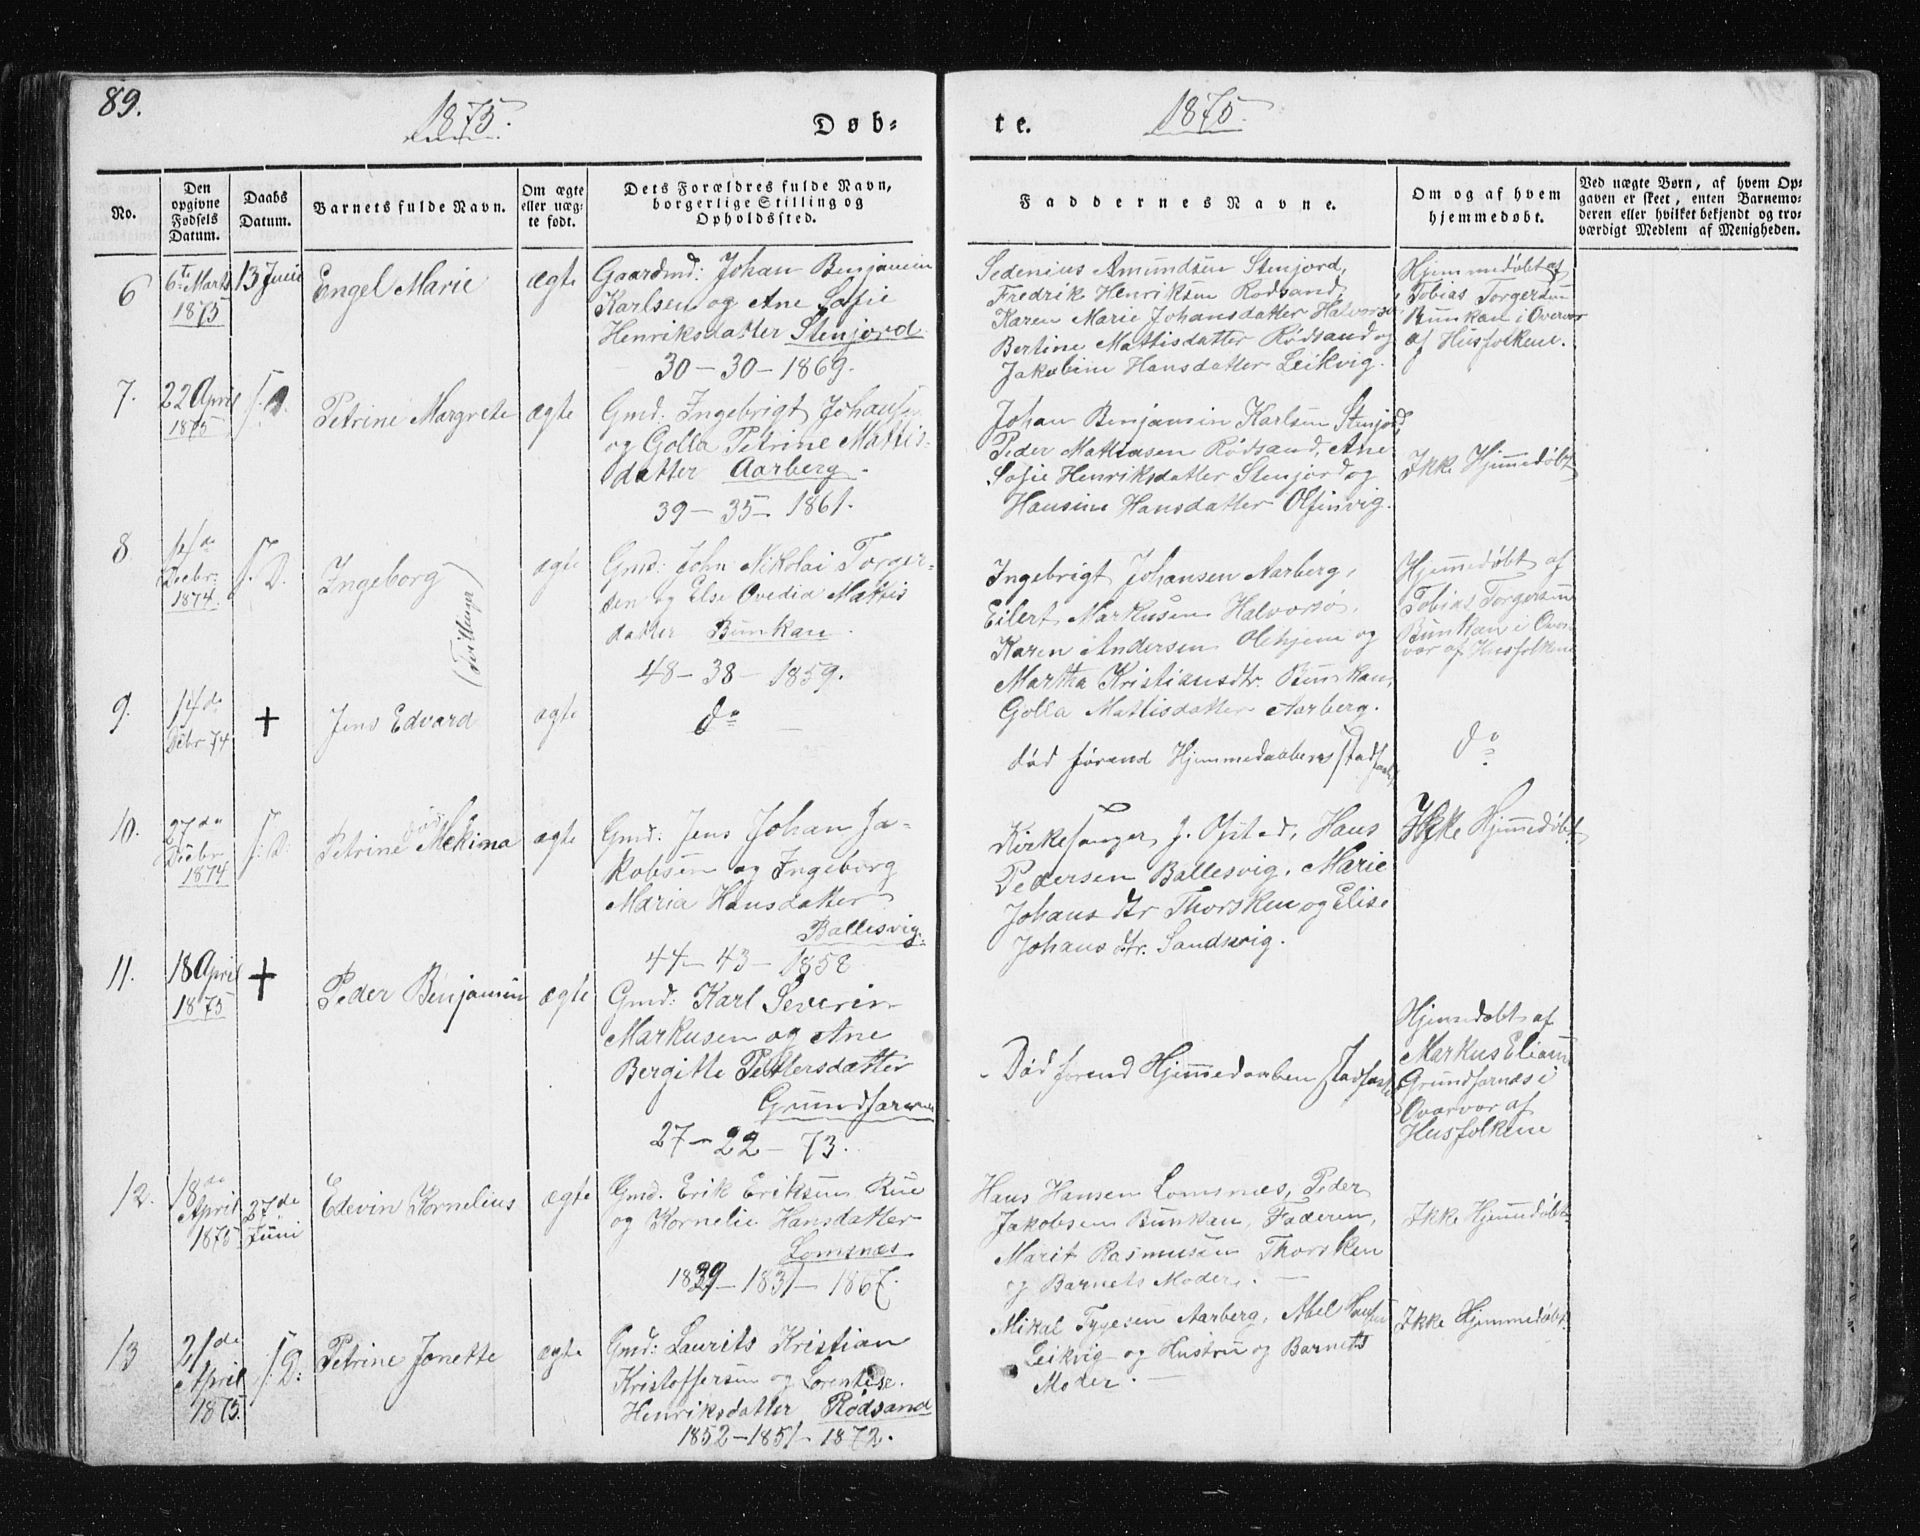 89.
1875.
Døb-
te.
1875.
No.
Den opgivne Fødsels Datum.
Daabs Datum.
Barnets fulde Navn.
Om ægte eller uægte født.
Dets Forældres fulde Navn, borgerlige Stilling og Opholdssted.
Faddernes Navne.
Om og af hvem hjemmedøbt.
Ved uægte Børn, af hvem Opgaven er skeet, enten Barnemoderen eller hvilket bekjendt og troværdigt Medlem af Menigheden.
6
6te Marts
1875
13 Juni
Engel Marie
ægte
Gaardmd: Johan Benjamin
Karlsen og Ane Sofie
Henriksdatter Stenjord
30-30-1869.
Sedenius Amundsen Stenjord,
Fredrik Henriksen Rødsand,
Karen Marie Johansdatter Halvorsø,
Bertine Mattisdatter Rødsand og
Jakobine Hansdatter Leikvig.
Hjemmedøbt af
Tobias Torgersen
Bunkan i Overvær
af Husfolkene.
7.
22 April
1875
S. D.
Petrine Margrete
ægte
Gmd. Ingebrigt Johansen
og Golla Petrine Mattis-
datter Aarberg.
39-35-1861.
Johan Benjamin Karlsen Stenjord,
Peder Mathiasen Rødsand, Ane
Sofie Henriksdatter Stenjord og
Hansine Hansdatter
Ikke Hjemmedøbt
8
14de
Decbr:
1874.
S. D.
Ingeborg
(Tvillinger)
ægte
Gmd: John Nikolai Torger-
sen og Else Ovedia Mattis
datter Bunkan.
48-38-1859.
Ingebrigt Johansen Aarberg,
Eilert Markusen Halvorsø,
Karen Andersen og
Martha Kristiansdtr. Bunkan,
Golla Mattisdatter Aarberg.
Hjemmedøbt af
Tobias Torgersen
Bunkan i Over-
vær af Husfolkene
9.
14de
Decbr 74
+
Jens Edvard
ægte
do
død førend Hjemmedaabens Stadfæst
do
10.
27de
Decbr
1874
S: D:
Petrine Mekima
ægte
Gmd: Jens Johan Ja-
kobsen og Ingeborg
Maria Hansdatter
Ballesvig.
44-43-1858
Kirkesanger J. Opsted, Hans
Pedersen Ballesvig, Marie
Johansdtr Thorsken og Elise
Johansdtr. Sandvig.
Ikke Hjemmedøbt
11.
18 April
1875
+
Peder Benjamin
ægte
Gmd: Karl Severin
Markusen og Ane
Bergitte Pettersdatter
Grundfarnes
27-22-73.
- Død førend Hjemmedaaben stadfæst
Hjemmedøbt af
Markus Eliasen
Grundfarnæs i
Overvær af
Husfolkene
12.
18de
April
1875
27de
Juni
Edevin Kornelius
ægte
Gmd. Erik Eriksen Rue
og Kornelie Hansdatter
Lomsnæs
1839-1831-1867.
Hans Hansen Lomsnæs, Peder
Jakobsen Bunkan, Faderen,
Marit Rasmussen Thorsken
og Barnets Moder. -
Ikke Hjemmedøbt
13
21de
April
1875.
S. D:
Petrine Jonette
ægte
Gmd: Laurits Kristian
Kristoffersen og Lorentse
Henriksdatter Rødsand
1852-1851-1872.
Mikal Tygesen Aarberg, Abel Hansen
Leikvig og Hustru og Barnets
Moder. -
Ikke Hjemmedøbt